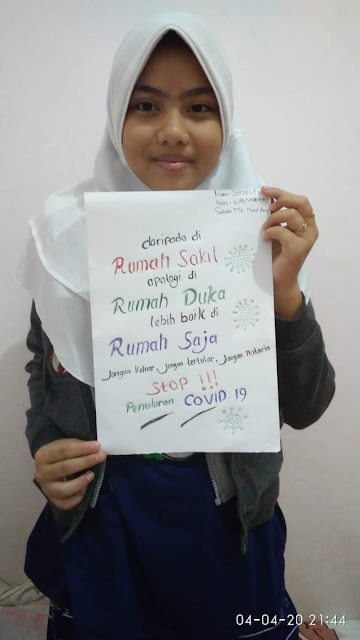 Nama :
Kelas :
Sekolah :
daripada di
Rumah Sakit
apalagi di
Rumah Duka
lebih baik di
Rumah Saja
Jangan Keluar, Jangan tertular, Jangan Nularin
STOP !!!
Penularan COVID 19
04-04-20 21:44